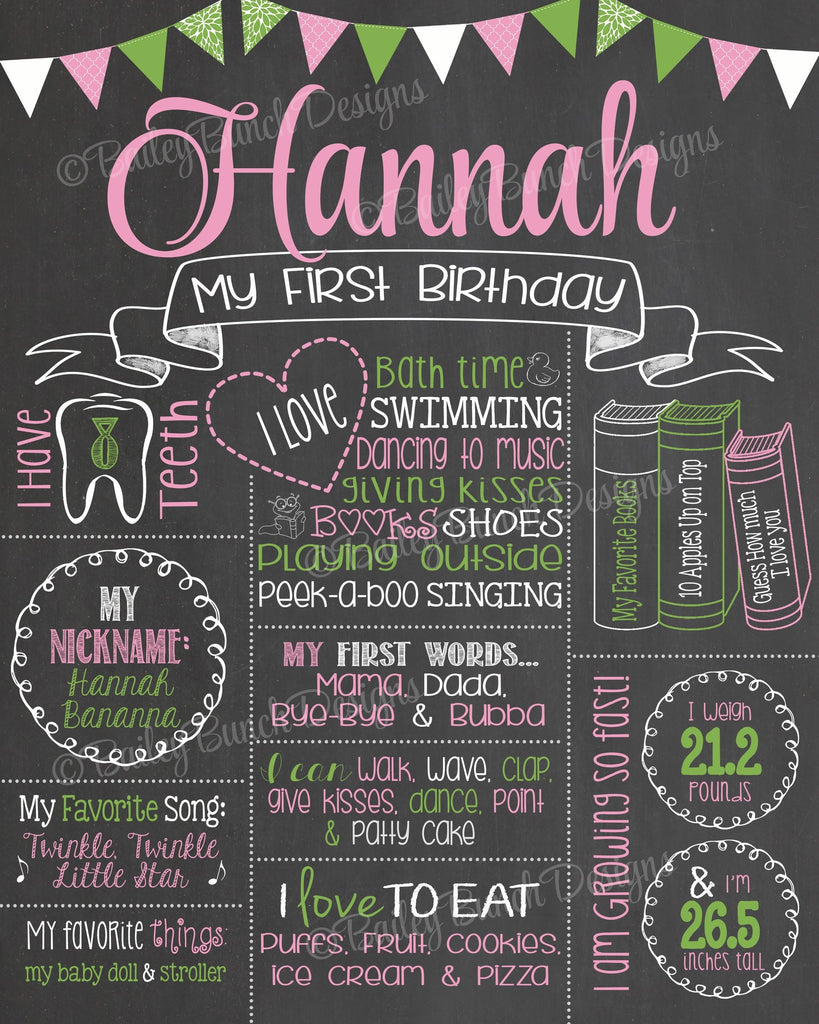 ©BaileyBunch Designs
©BaileyBunch Designs
Hannah
My First Birthday
I Have
8
Teeth
I LOVE
Bath time
SWIMMING
Dancing to music
giving kisses
BOOKS SHOES
Playing outside
Peek-a-boo SINGING
My Favorite Books
10 Apples Up on Top
Guess How much
I love you
©BaileyBunch Designs
MY
NICKNAME:
Hannah
Bananna
MY FIRST WORDS...
Mama, Dada,
Bye-Bye & Bubba
©BaileyBunch Designs
I can walk, wave, clap,
give kisses, dance, point
& patty cake
My Favorite Song:
Twinkle, Twinkle
Little Star
My favorite things:
my baby doll & stroller
I love TO EAT
Puffs, Fruit, Cookies,
ice cream & pizza
©BaileyBunch Designs
I am Growing so fast!
I weigh
21.2
pounds
& I'm
26.5
inches tall